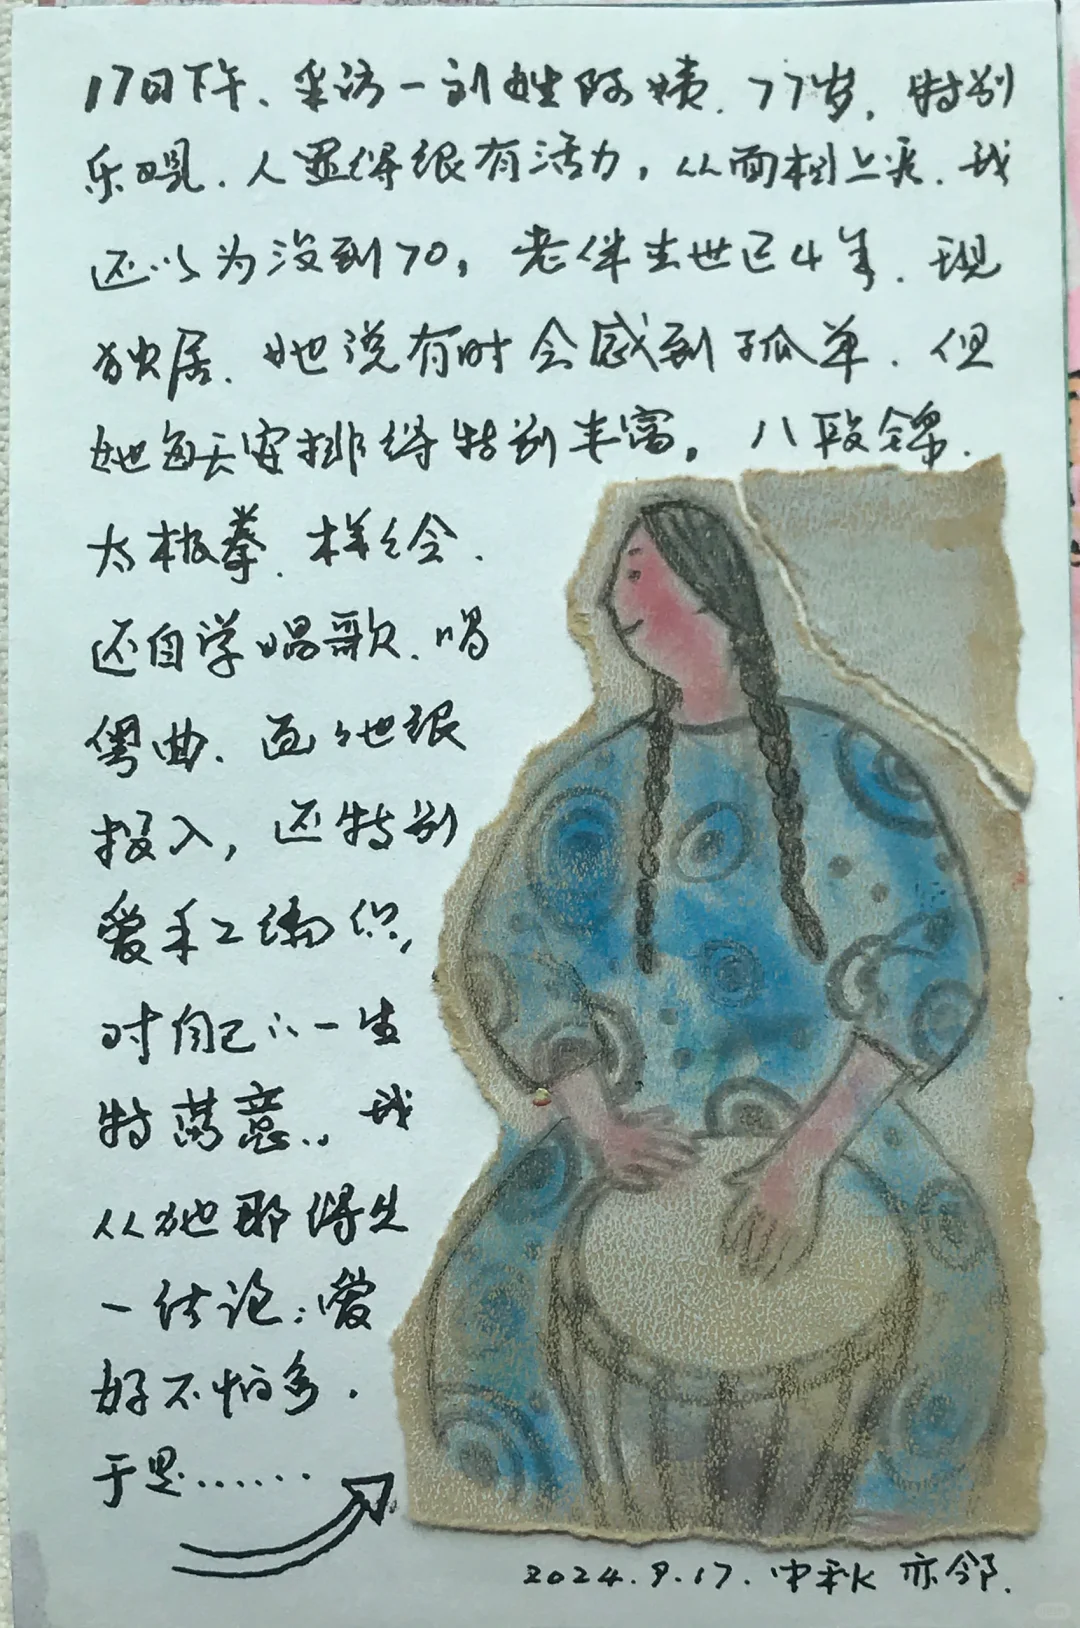 17日下午、采访一刘姓阿姨.77岁.特别
乐观.人显得很有活力，从面相上来.我
还以为没到70，老伴去世已4年.现
独居.她说有时会感到孤单.但
她每天安排得特别丰富。八段锦.
太极拳.样々会.
还自学唱歌.唱
粤曲.画々也很
投入，还特别
爱手工编织，
对自己的一生
特满意..我
从她那得出
一结论：爱
好不怕多.
于是......
2024.9.17.中秋 亦邻.